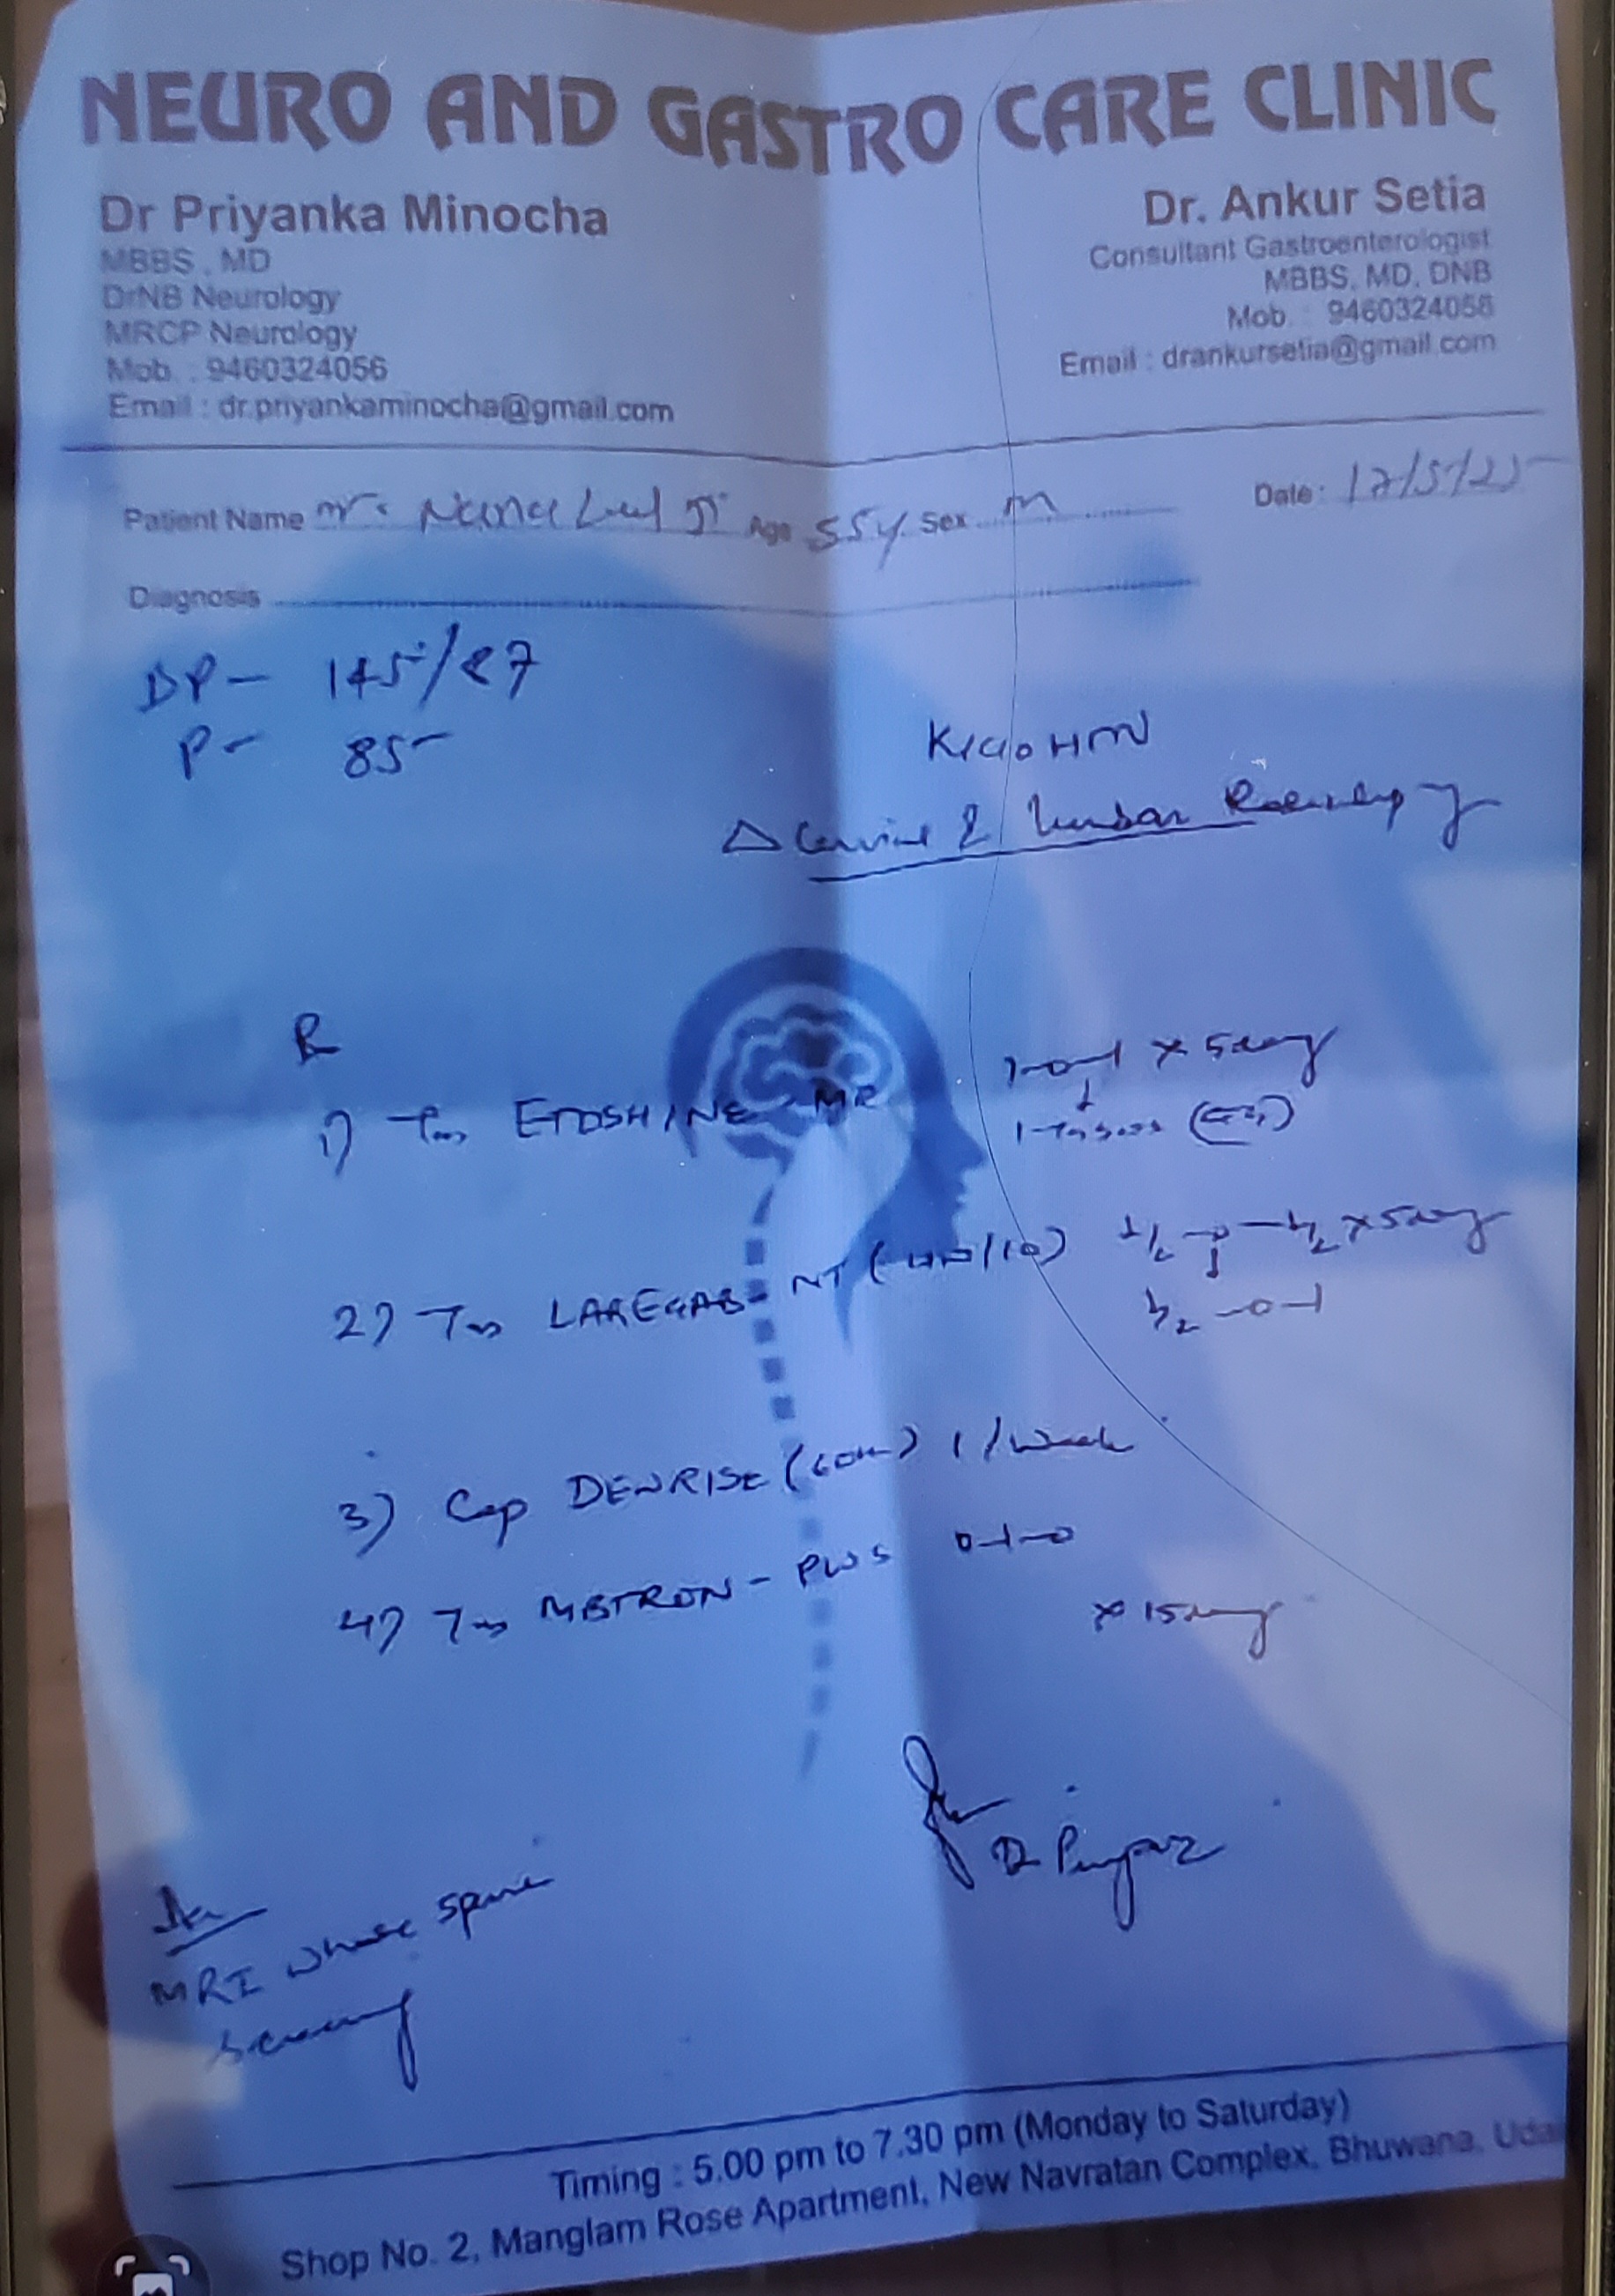 NEURO AND GASTRO CARE CLINIC
Dr Priyanka Minocha
MBBS, MD
DrNB Neurology
MRCP Neurology
Mob. : 9460324056
Email : dr.priyankaminocha@gmail.com
Dr. Ankur Setia
Consultant Gastroenterologist
MBBS, MD, DNB
Mob. : 9460324056
Email : drankursetia@gmail.com
Patient Name Mr. Age 55y Sex M
Date : 17/5/25
Diagnosis
BP - 145/87
P - 85
K/c/o HTN
Δ Cervical & lumbar Radiculopathy
R
1) Tab ETOSHINE - MR 1-0-1 x 5 days
↓
1-
2) Tab LAREGAB - NT (400/10) 1/2 - 0 - 1/2 x 5 days
↓
1/2 - 0 - 1
3) Cap DEWRISE (60K) 1/week
4) Tab MBTRON - PLUS 0-1-0
x 15 days
Dr Priyanka
Adv
MRI whole spine
screening
Timing : 5.00 pm to 7.30 pm (Monday to Saturday)
Shop No. 2, Manglam Rose Apartment, New Navratan Complex, Bhuwana, Uda